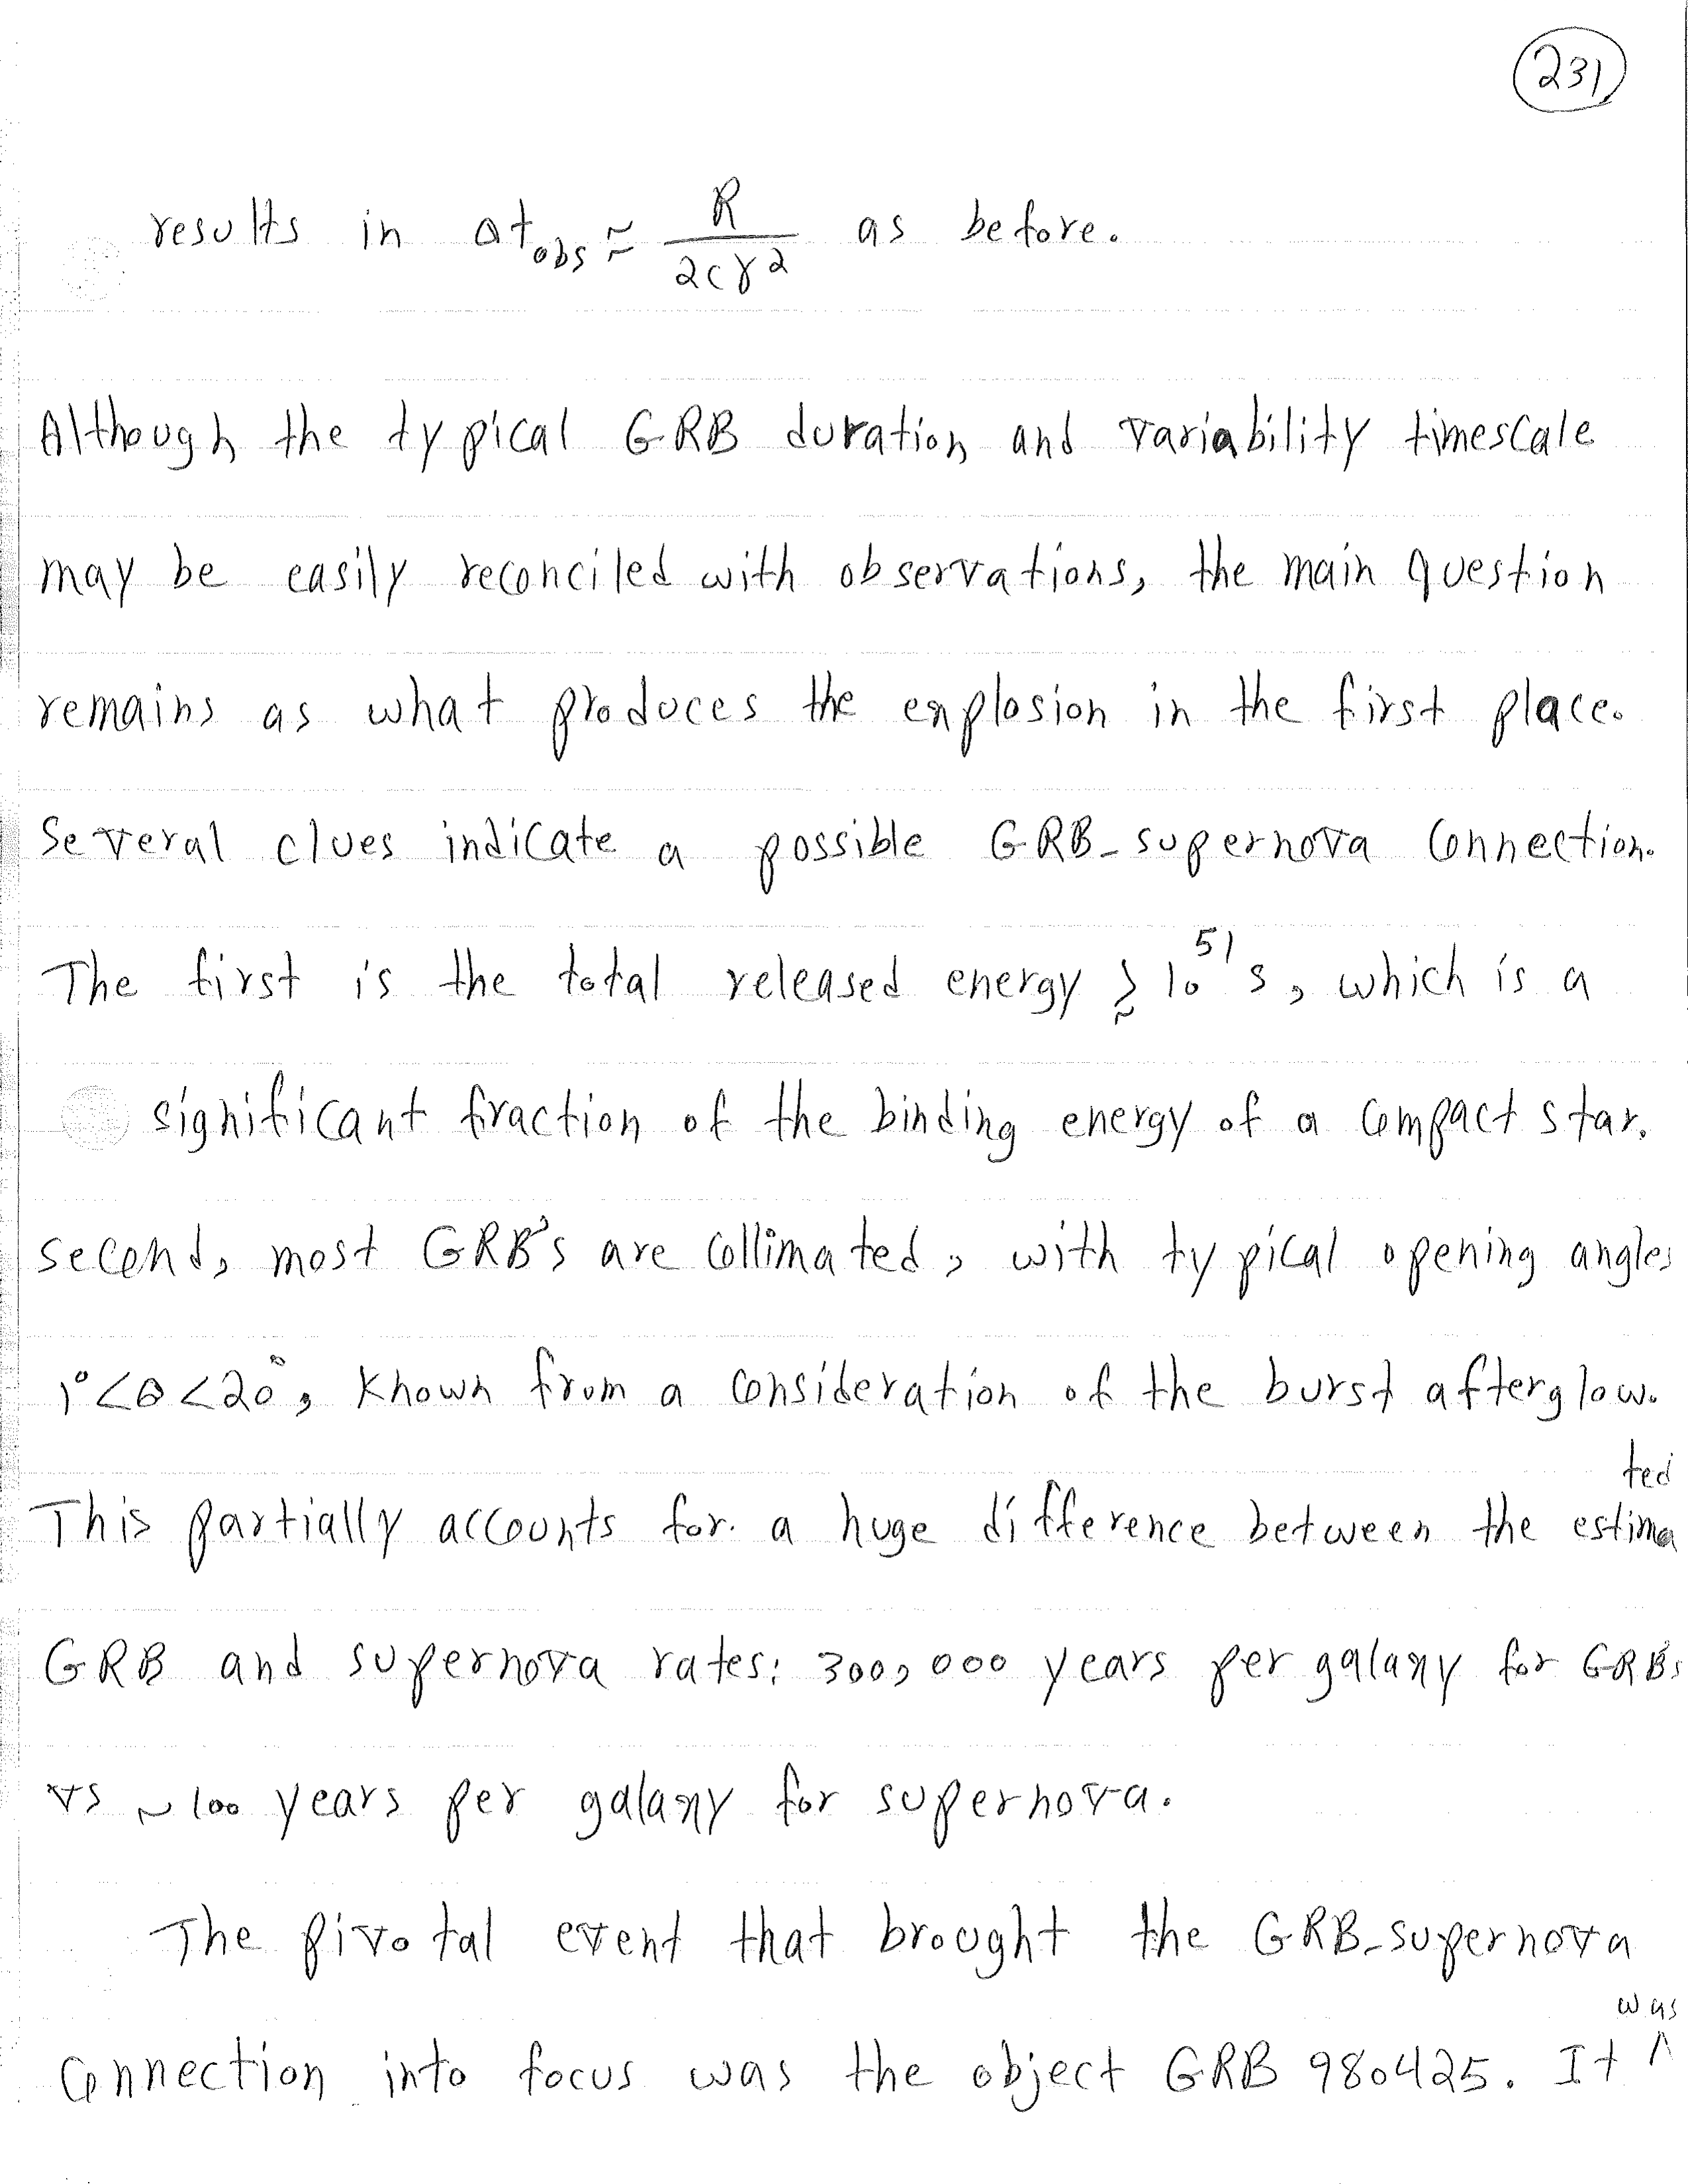 231
results in Δt_obs ≈ R/(2cγ²) as before.
Although the typical GRB duration and variability timescale
may be easily reconciled with observations, the main question
remains as what produces the explosion in the first place.
Several clues indicate a possible GRB-supernova connection.
The first is the total released energy ≳ 10^51 s, which is a
significant fraction of the binding energy of a compact star.
Second, most GRB's are collimated, with typical opening angles
1°<θ<20°, known from a consideration of the burst afterglow.
This partially accounts for a huge difference between the estimated
GRB and supernova rates: 300,000 years per galaxy for GRBs
vs ~100 years per galaxy for supernova.
The pivotal event that brought the GRB-supernova
connection into focus was the object GRB 980425. It was